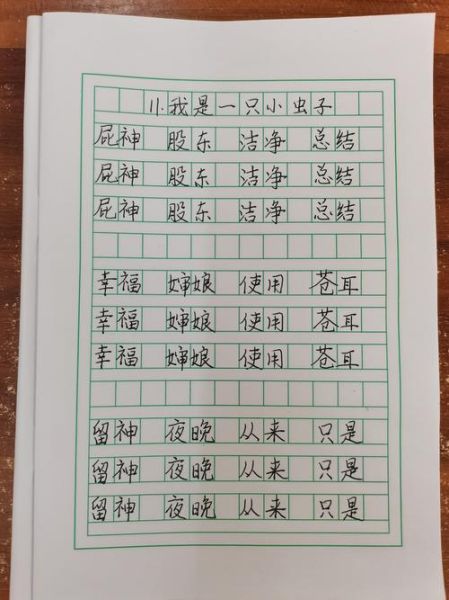 11.我是一只小虫子
屁神 股东 洁净 总结
屁神 股东 洁净 总结
屁神 股东 洁净 总结
幸福 婶娘 使用 苍耳
幸福 婶娘 使用 苍耳
幸福 婶娘 使用 苍耳
留神 夜晚 从来 只是
留神 夜晚 从来 只是
留神 夜晚 从来 只是